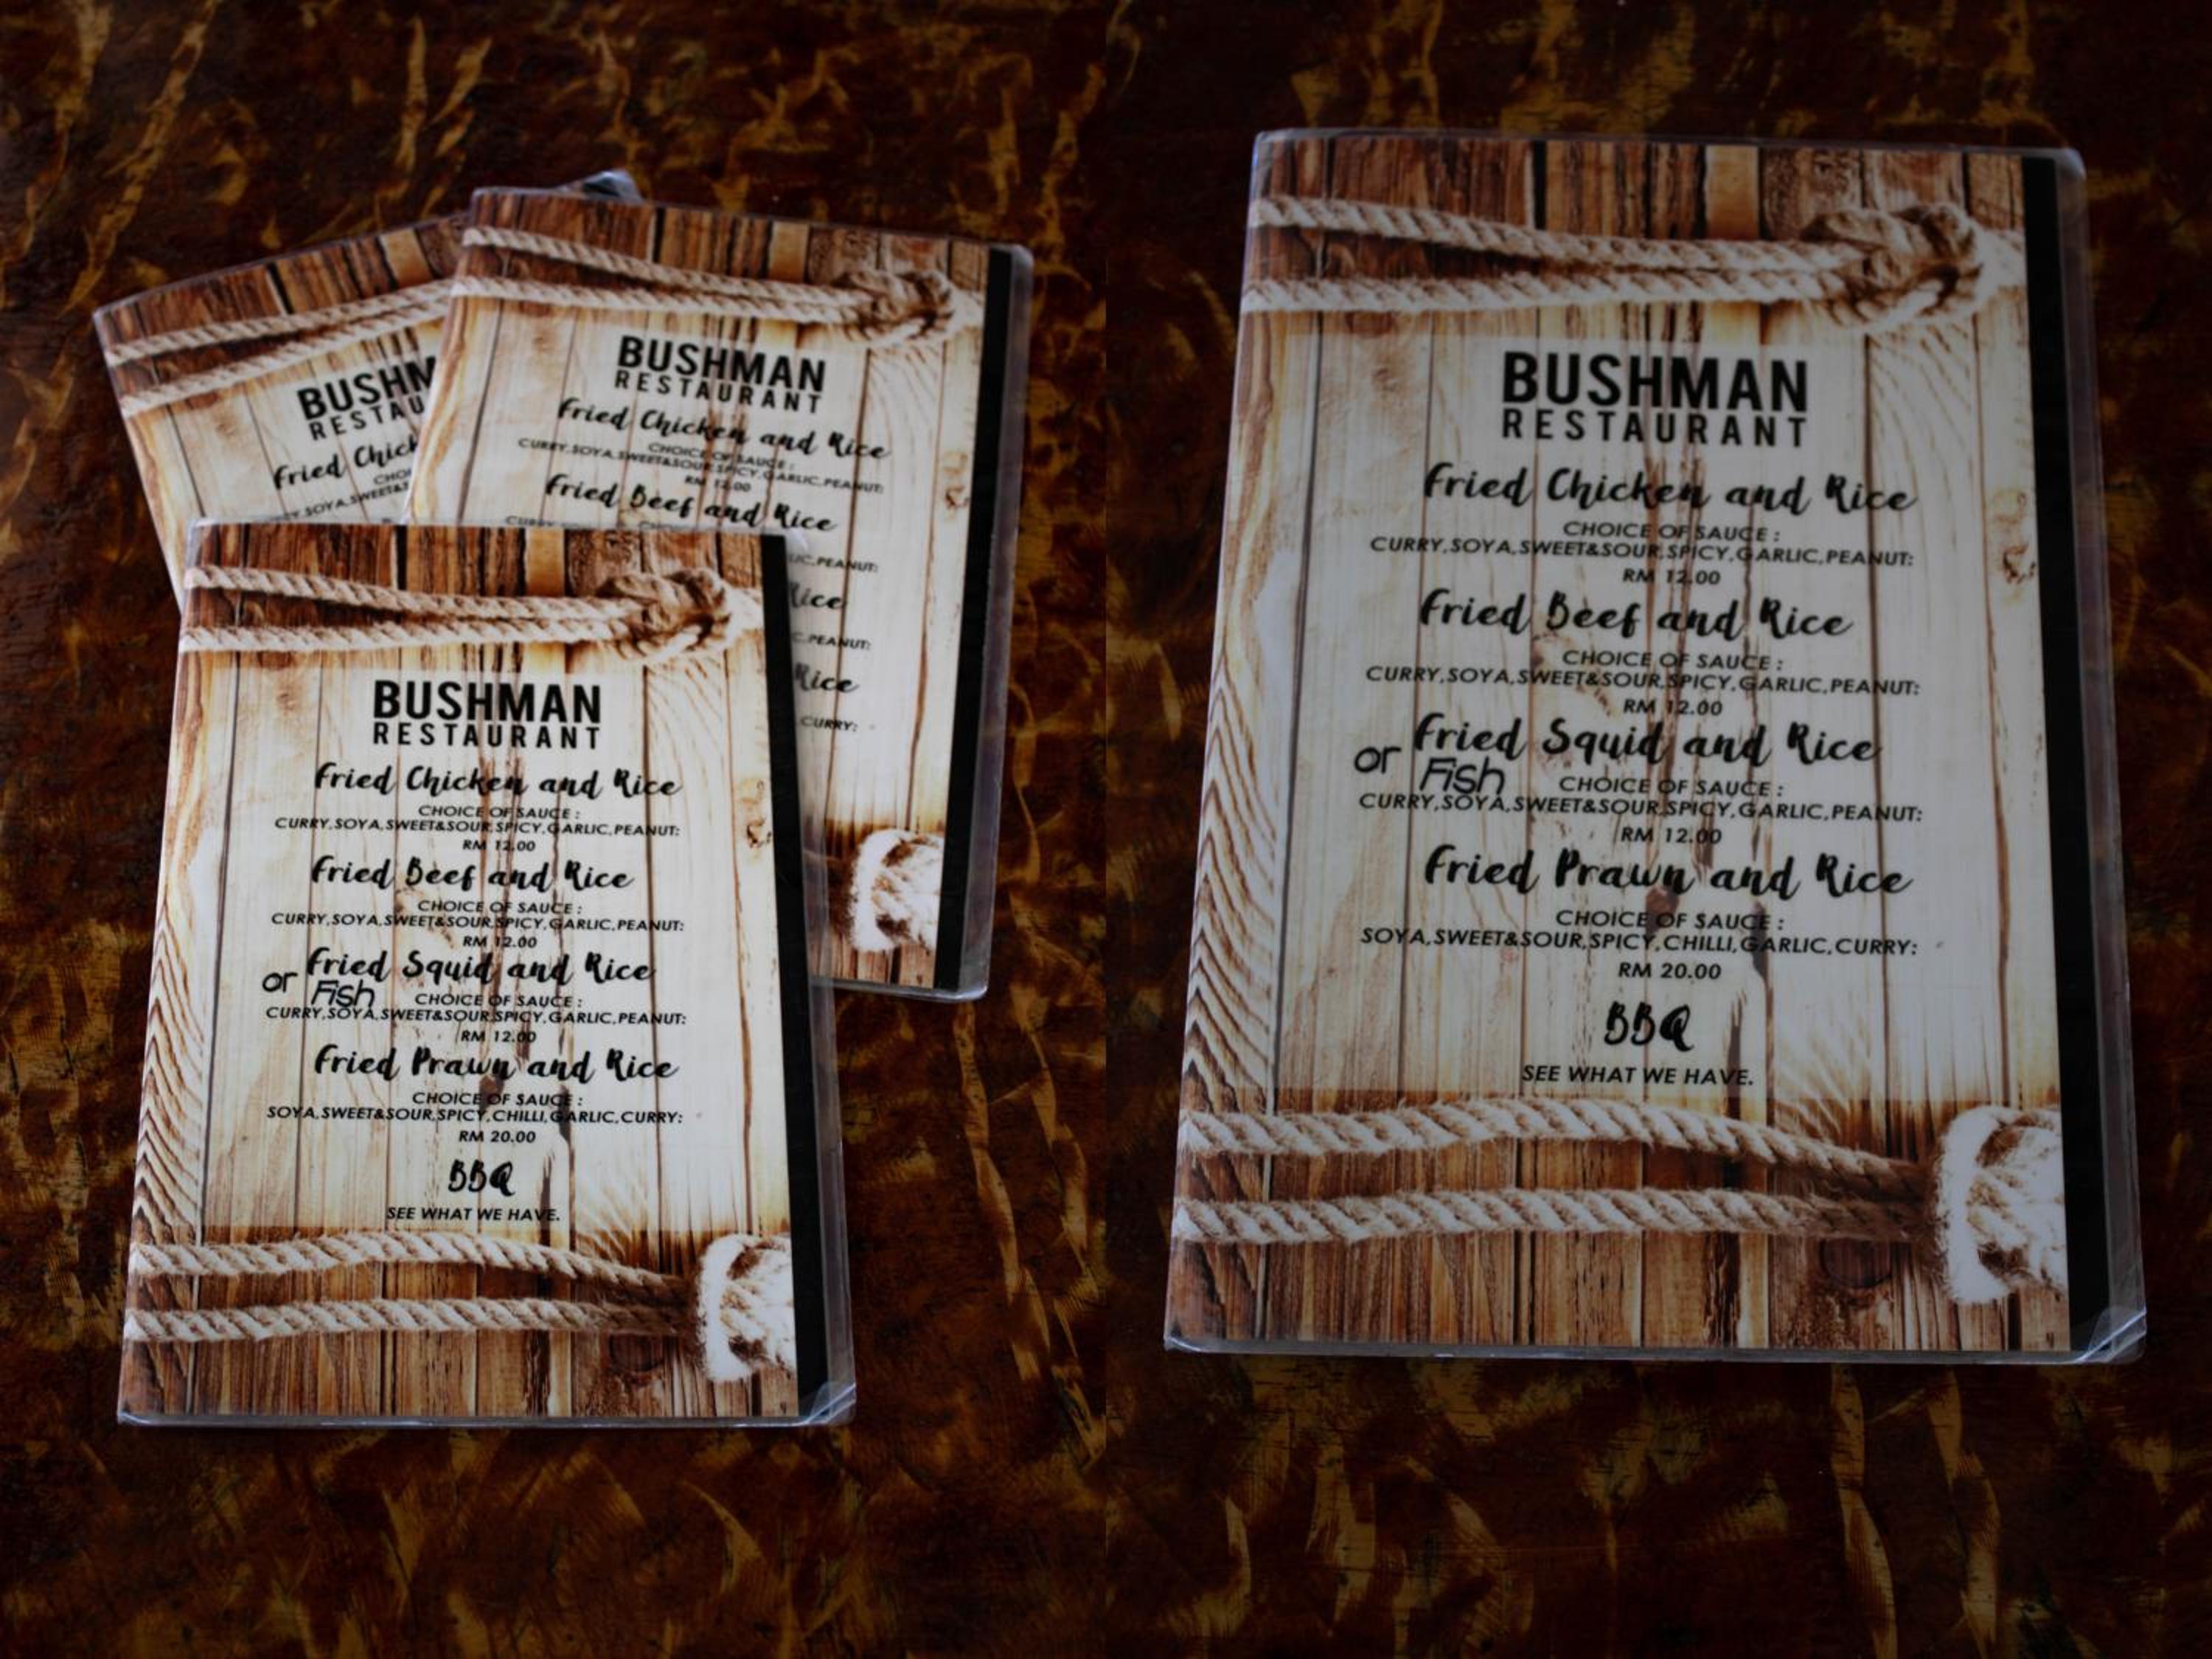 BUSHM
RESTAU
Fried Chick
SOYA,SWEET&S
BUSHMAN
RESTAURANT
Fried Chicken and Rice
CHOICE OF SAUCE :
CURRY,SOYA,SWEET&SOUR,SPICY,GARLIC,PEANUT:
RM 12.00
Fried Beef and Rice
PEANUT:
Rice
PEANUT:
Rice
CURRY:
BUSHMAN
RESTAURANT
Fried Chicken and Rice
CHOICE OF SAUCE :
CURRY,SOYA,SWEET&SOUR,SPICY,GARLIC,PEANUT:
RM 12.00
Fried Beef and Rice
CHOICE OF SAUCE :
CURRY,SOYA,SWEET&SOUR,SPICY,GARLIC,PEANUT:
RM 12.00
Fried Squid and Rice
or Fish
CHOICE OF SAUCE :
CURRY,SOYA,SWEET&SOUR,SPICY,GARLIC,PEANUT:
RM 12.00
Fried Prawn and Rice
CHOICE OF SAUCE :
SOYA,SWEET&SOUR,SPICY,CHILLI,GARLIC,CURRY:
RM 20.00
BBQ
SEE WHAT WE HAVE.
BUSHMAN
RESTAURANT
Fried Chicken and Rice
CHOICE OF SAUCE :
CURRY,SOYA,SWEET&SOUR,SPICY,GARLIC,PEANUT:
RM 12.00
Fried Beef and Rice
CHOICE OF SAUCE :
CURRY,SOYA,SWEET&SOUR,SPICY,GARLIC,PEANUT:
RM 12.00
Fried Squid and Rice
or Fish
CHOICE OF SAUCE :
CURRY,SOYA,SWEET&SOUR,SPICY,GARLIC,PEANUT:
RM 12.00
Fried Prawn and Rice
CHOICE OF SAUCE :
SOYA,SWEET&SOUR,SPICY,CHILLI,GARLIC,CURRY:
RM 20.00
BBQ
SEE WHAT WE HAVE.